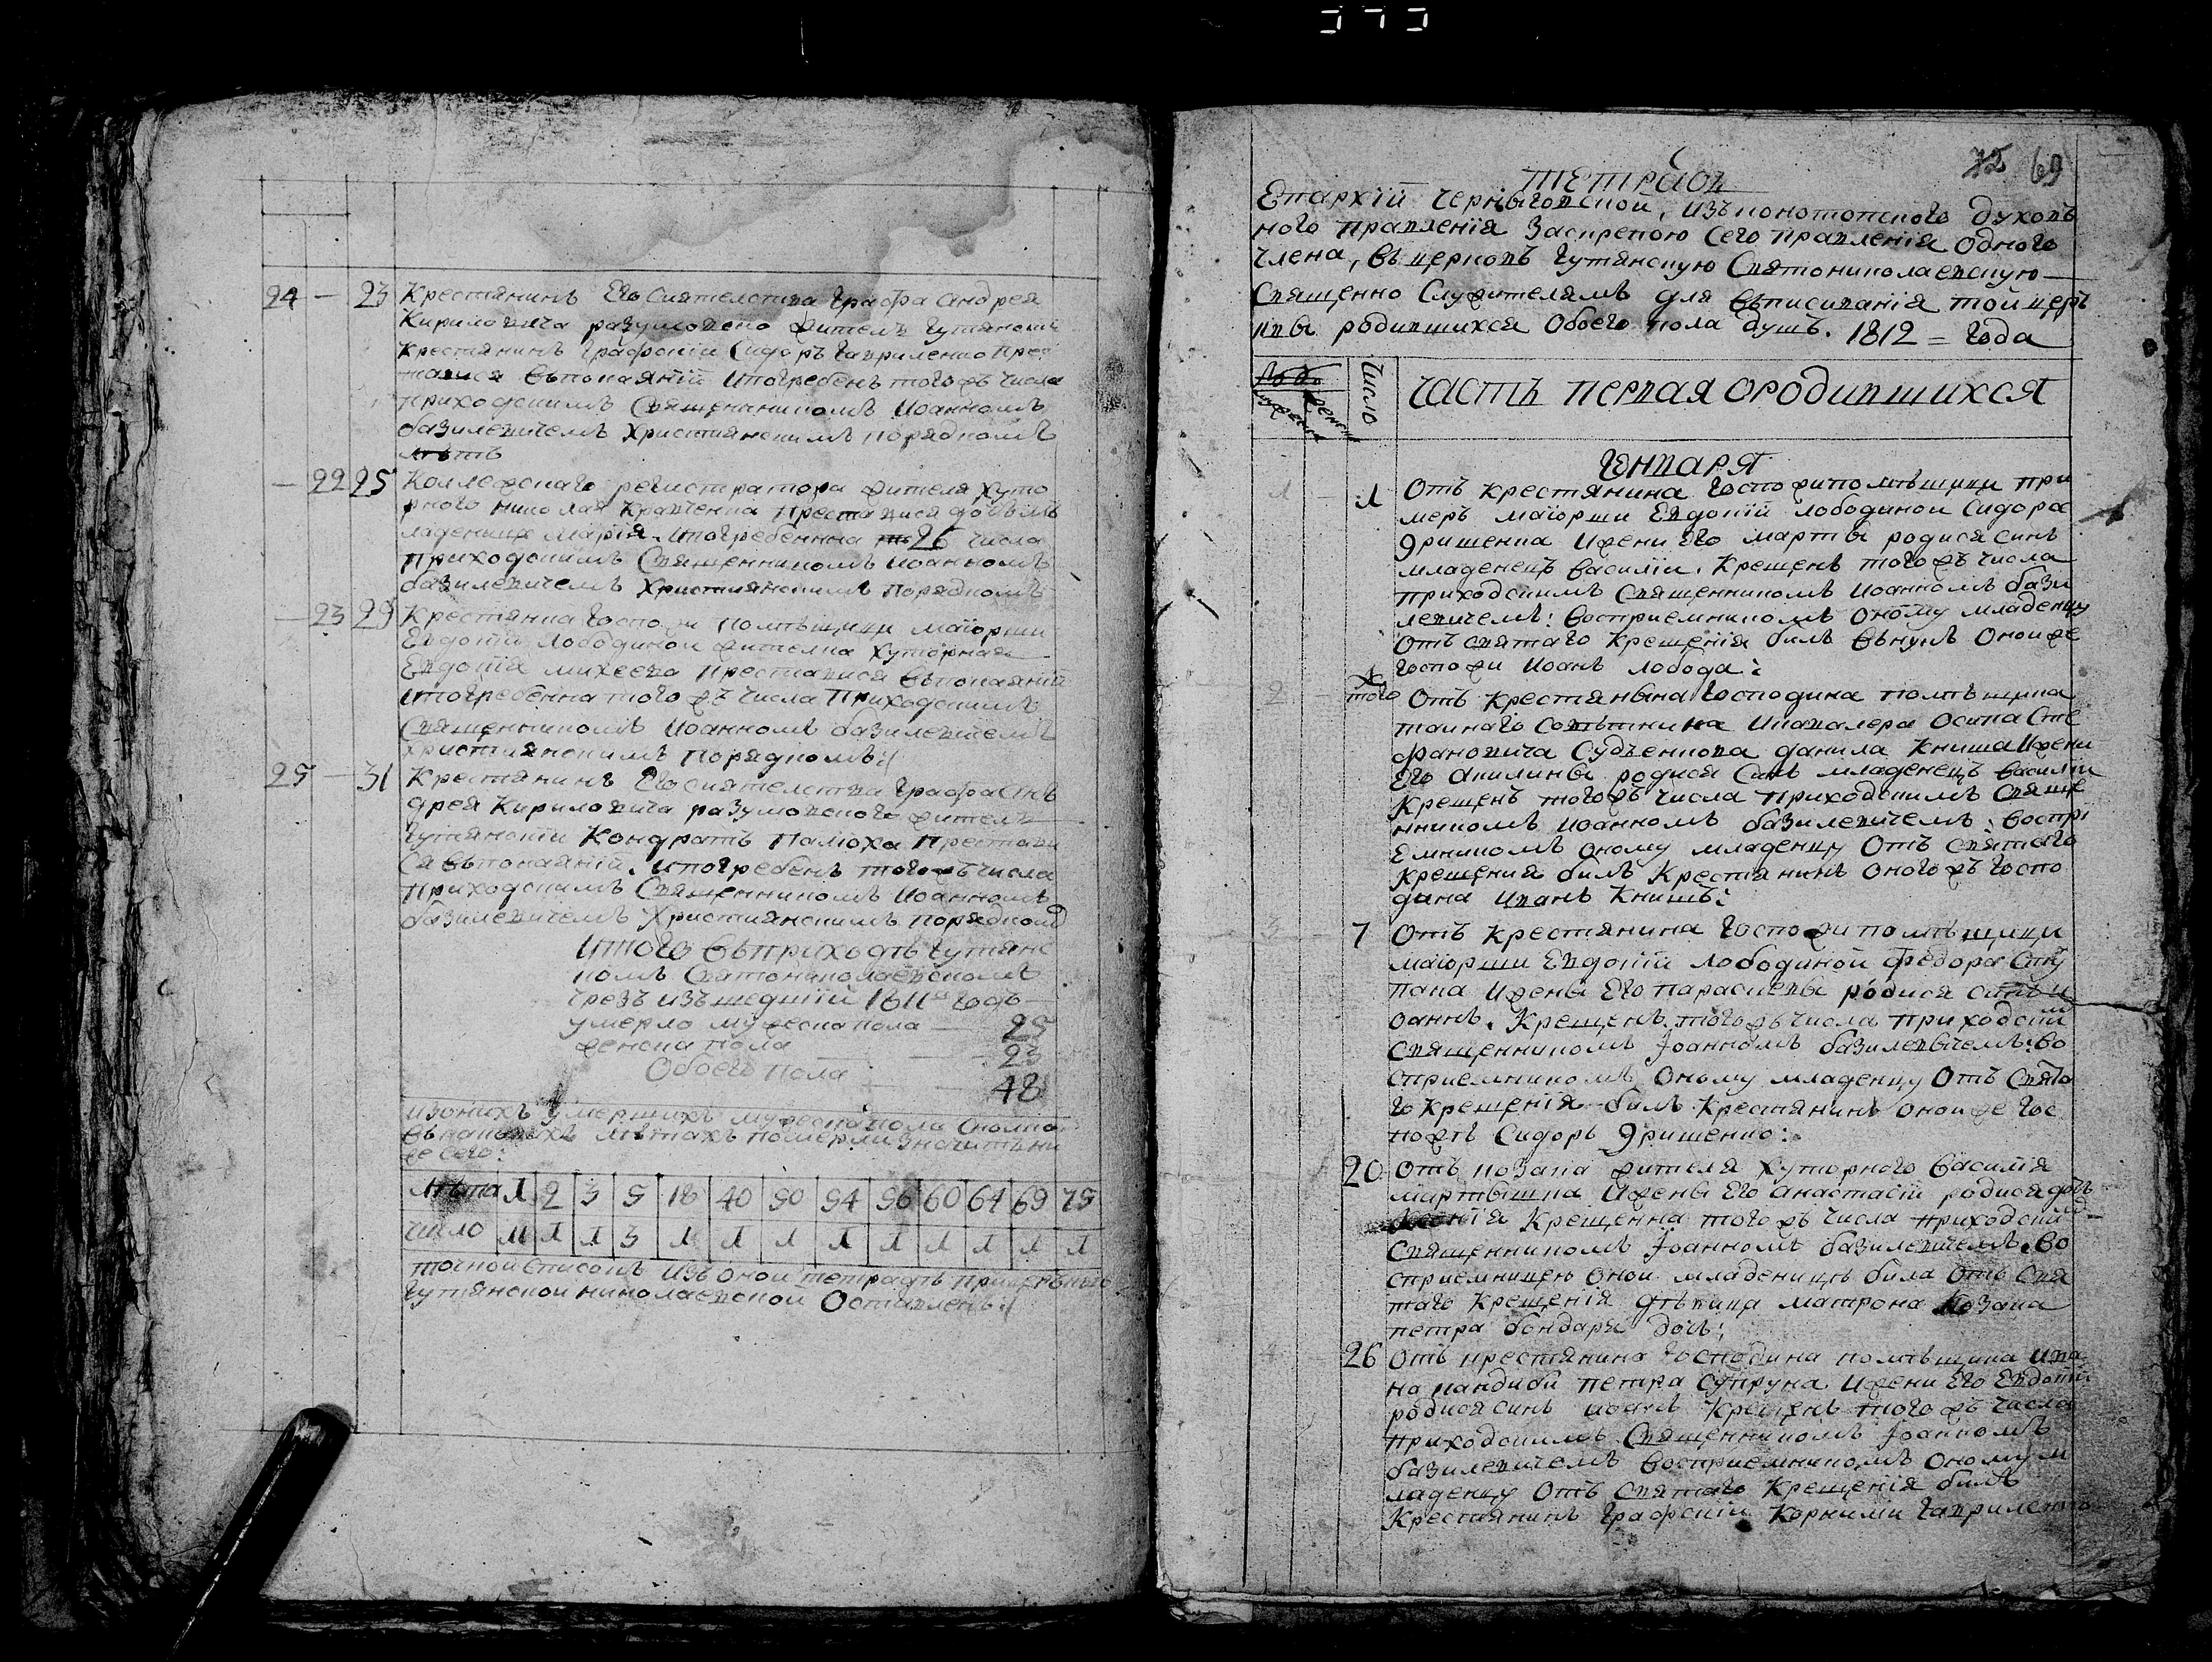 24 — 23 Крестянинъ Его Сиятелства Графа Андрея
Кириловича разумовско жителъ Гутянски
крестянинъ Графскіи Сидоръ Гавриленко Прес
тавися въпокаяніи Ипогребенъ того жъ числа
приходскимъ Священникомъ Иоанномъ
базилевичемъ Християнскимъ порядкомъ
— 22 25 Коллежскаго регистратора жителя Хуто
рного николая Кравченка преставися
младеница Марія. Ипогребенна 26 числа
приходскимъ Священникомъ Иоанномъ
базилевичемъ Християнскимъ порядкомъ
— 23 29 Крестянка Госпожи помѣщици маіорши
Евдокіи Лободинои жителка хуторная
Евдокія михеева преставися въпокаяніи
ипогребенна того жъ числа Приходскимъ
Священникомъ Иоанномъ базилевичемъ
християнскимъ порядкомъ:/
25 — 31 Крестянинъ Его сиятелства графа Ан
дрея Кириловича разумовского жителъ
Гутянскіи Кондратъ Палюха Престави
ся въпокаяніи. ипогребенъ того жъ числа
приходскимъ Священникомъ Иоанномъ
базилевичемъ Християнскимъ порядком
Итого въприходѣ Гутянс
комъ Святониколаевскомъ
чрезъ изъшедшій 1811й годъ
умерло мужеска пола — 25
женска пола — 23
Обоего пола — 48
изонихъ умершихъ мужеска пола сколко
въкакихъ лѣтахъ померли значитъ ни
же сего:
Лѣта 1 2 3 5 18 40 50 54 56 60 64 69 75
число 11 1 1 3 1 1 1 1 1 1 1 1 1
точной Списокъ изъ оной тетрадѣ прицеркви
Гутянской николаевской Оставленъ:/
72 69
тетрадъ
Епархіи Чернѣговской, изъконотопского духовъ
ного правленія Заскрепою сего правленія одного
члена, въ церковъ Гутянскую Святониколаевскую
Священно Служителямъ для въписиванія той цер
квы родившихся обоего пола душъ. 1812 = года
Число
Часть первая ородившихся
Генваря
1 — 1 Отъ крестянина Госпожи помѣщици при
меръ маіорши Евдокіи Лободинои Сидора
Яришенка Ижени Его Марты родися синъ
младенецъ Василіи. Крещенъ того жъ числа
приходскимъ Священникомъ Иоанномъ бази
левичемъ: восприемникомъ Оному младенцу
отъ святаго Крещенія билъ внукъ Оной же
госпожи Иоанъ Лобода:
2 — того Отъ Крестянына Господина помѣщика
таинаго Совѣтника Икавалера Осипа Сте
фановича Судъенкова данила Книша Ижени
Его Акилины родися Синъ младенецъ Василіи
Крещенъ того жъ числа приходскимъ Свяще
нникомъ Иоанномъ базилевичемъ: воспри
емникомъ оному младенцу Отъ святаго
крещения билъ Крестянинъ оного жъ Госпо
дина Иванъ Книшъ:
3 — 7 Отъ Крестянина Госпожи помѣщици
маіорши Евдокіи Лободиной федора
Ижены Его параскевы родися синъ И
оаннъ. Крещенъ того жъ числа приходским
Священникомъ Іоанномъ базилевичемъ: во
сприемникомъ Оному младенцу Отъ Свято
го Крещенія билъ Крестянинъ оной же Гос
пожѣ Сидоръ Яришенко:
20 Отъ козака жителя Хуторного Василія
мартышка Ижены Его Анастасіи родися
Крещенна того жъ числа приходским
Священникомъ Іоанномъ базилевичемъ. Во
сприемницею оной младеницѣ била Отъ Свя
таго Крещенія дѣвица матрона козака
петра бондаря дочь:
4 — 26 Отъ крестянина Господина помѣщика Ива
на кандиби петра Супруна Ижени Его Евдокіи
родися синъ иоанъ Крещенъ того жъ числа
приходскимъ Священникомъ Іоанномъ
базилевичемъ восприемникомъ оному м
ладенцу Отъ Святаго Крещенія билъ
Крестянинъ Графскіи Корниліи Гавриленко